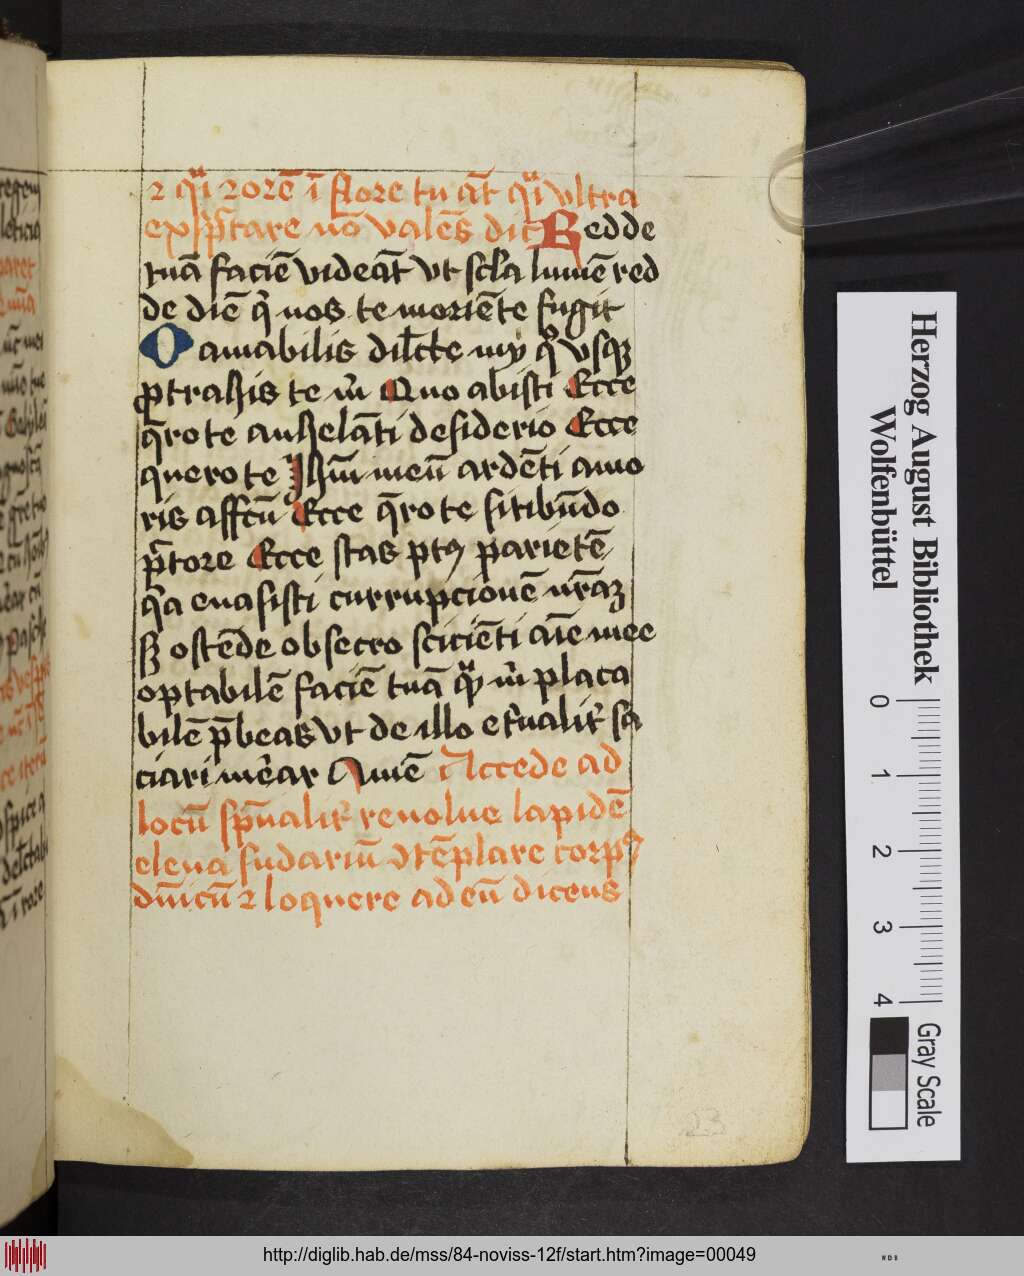 ⁊ qͣi rorē ī flore tu at̄ qͣi vltra
exspectare nō valēs dic Redde
tuā faciē videāt vt scl̄a lumē red
de diē q̄ nos te moriēte fugit
O amabilis dil̄cte mȳ qͦ vsqꝫ
ꝓtrahis te m̄ Quo abisti Ecce
q̄ro te anhelāti desiderio Ecce
quero te Ihm̄ meū ardēti amo
ris affc̄u Ecce q̄ro te sitibūdo
pc̄tore Ecce stas ptꝰ parietē
qͣa euasisti currupcionē nr̄aꝫ
sꝫ ostēde obsecro scicient̄i aīe mee
optabilē faciē tuā qͣꝫ m̄ placa
bilē p̄beas vt de illo et̄nalit̄ sa
ciari mēar Amē Accede ad
locū sp̄ualit̄ reuolue lapidē
eleua sudariū ↄtēplare corpꝰ
dn̄icū ⁊ loquere ad eū dicens
23
Herzog August Bibliothek
Wolfenbüttel
0 1 2 3 4
Gray Scale
http://diglib.hab.de/mss/84-noviss-12f/start.htm?image=00049